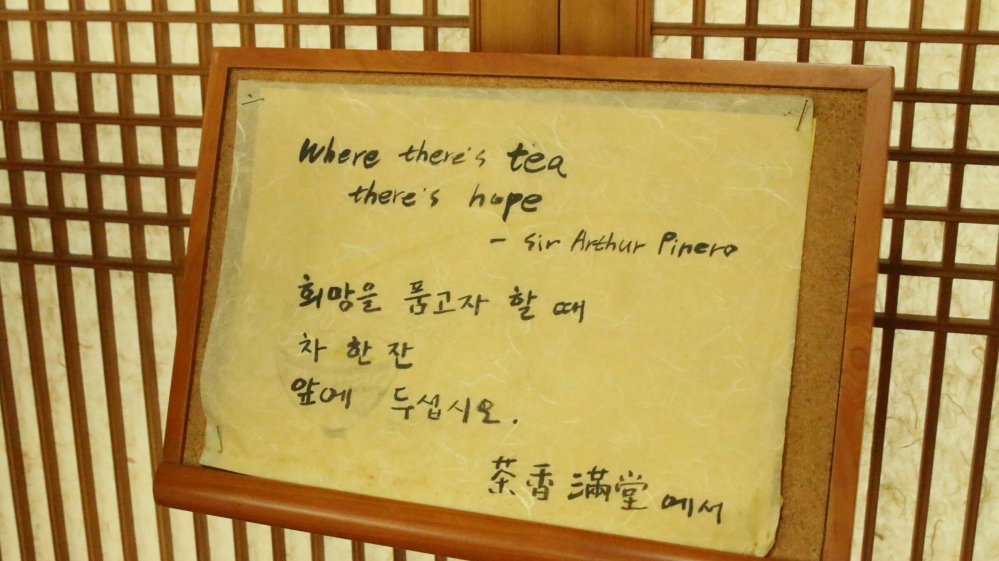 Where there's tea
there's hope
- Sir Arthur Pinero
희망을 품고자 할 때
차 한 잔
앞에 두십시오.
茶香滿堂에서